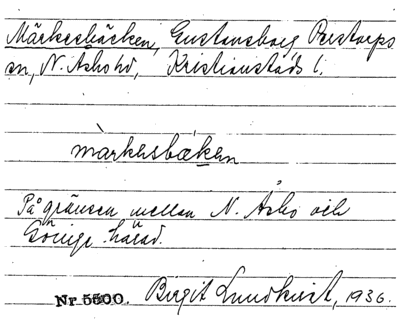 Märkesbäcken, Gustavsborg Perstorps
sn, N. Åsbo hd, Kristianstads l.
màrkesbæken
På gränsen mellan N. Åsbo och
Göinge härad.
Nr 5600. Birgit Lundkvist, 1936.